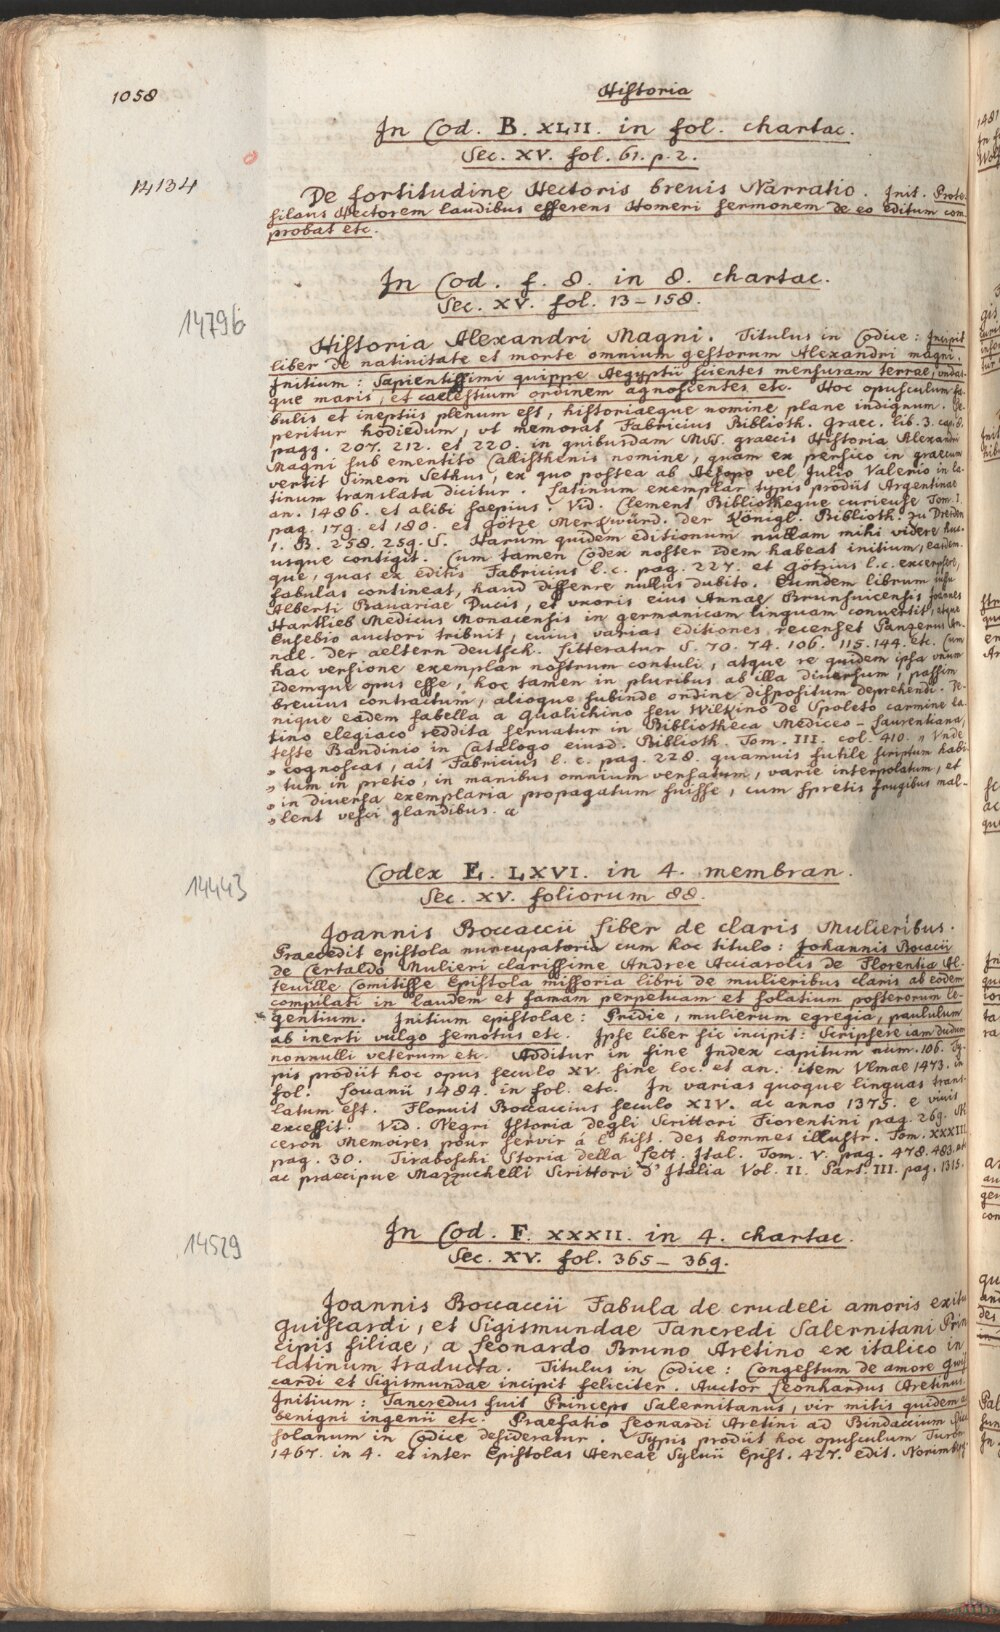 1058
Historia
In Cod. B. XLII. in fol. chartac.
Sec. XV. fol. 61. p. 2.
14134
De fortitudine Hectoris brevis Narratio. Init. Prote-
silaus Hectorem laudibus efferens Homeri sermonem de eo editum com-
probat etc.
In Cod. f. 8. in 8. chartac.
Sec. XV. fol. 13–158.
14796
Historia Alexandri Magni. Titulus in Codice: Incipit
liber de nativitate et morte omnium gestorum Alexandri magni.
Initium: Sapientissimi quippe Aegyptii scientes mensuram terrae, undas-
que maris, et caelestium ordinem agnoscentes etc. Hoc opusculum fa-
bulis et ineptiis plenum est, historiaeque nomine plane indignum. Re-
peritur hodiedum, ut memorat Fabricius Biblioth. graec. lib. 3. cap. 8.
pagg. 207. 212. et 220. in quibusdam MSS. graecis Historia Alexandri
Magni sub ementito Callisthenis nomine, quam ex persico in graecum
vertit Simeon Sethus, ex quo postea ab Aesopo vel Julio Valerio in la-
tinum translata dicitur. Latinum exemplar typis prodiit Argentinae
an. 1486. et alibi saepius. Vid. Clement Bibliotheque curieuse Tom. I.
pag. 179. et 180. et Götze Merkwürd. der Königl. Biblioth. zu Dresden
1. B. 258. 259. S. Harum quidem editionum nullam mihi videre huc-
usque contigit. Cum tamen Codex noster idem habeat initium, easdem-
que, quas ex editis Fabricius l. c. pag. 227. et Götzius l. c. excerpsere,
fabulas contineat, haud differre nullus dubito. Eumdem librum jussu
Alberti Bavariae Ducis, et uxoris eius Annae Brunsvicensis Joannes
Hartlieb Medicus Monacensis in germanicam linguam convertit, atque
Eusebio auctori tribuit, cuius varias editiones recenset Panzerus An-
nal. der aeltern Deutsch. Litteratur S. 70. 74. 106. 115. 144. etc. Cum
hac versione exemplar nostrum contuli, atque re quidem ipsa unum
idemque opus esse, hoc tamen in pluribus ab illa diversum, passim
brevius contractum, alioque subinde ordine dispositum deprehendi. De-
nique eadem fabella a Qualichino seu Wilkino de Spoleto carmine la-
tino elegiaco reddita servatur in Bibliotheca Mediceo-Laurentiana,
teste Bandinio in Catalogo eiusd. Biblioth. Tom. III. col. 410. „ Unde
„ cognoscas, ait Fabricius l. c. pag. 228. quamvis futile scriptum habi-
„ tum in pretio, in manibus omnium versatum, varie interpolatum, et
„ in diversa exemplaria propagatum fuisse, cum spretis frugibus mal-
„ lent vesci glandibus. a
Codex E. LXVI. in 4. membran.
Sec. XV. foliorum 88.
14443
Joannis Boccaccii Liber de claris Mulieribus.
Praecedit epistola nuncupatoria cum hoc titulo: Johannis Bocacii
de Certaldo Mulieri clarissime Andree Acciarolis de Florentia Al-
teville Comitisse Epistola missoria libri de mulieribus claris ab eodem
compilati in laudem et famam perpetuam et solatium posterorum le-
gentium. Initium epistolae: Pridie, mulierum egregia, paululum
ab inerti vulgo semotus etc. Ipse liber sic incipit: Scripsere iam dudum
nonnulli veterum etc. Additur in fine Index capitum num. 106. Ty-
pis prodiit hoc opus seculo XV. sine loc. et an. item Ulmae 1473. in
fol. Lovanii 1484. in fol. etc. In varias quoque linguas trans-
latum est. Floruit Boccaccius seculo XIV. ac anno 1375. e vivis
excessit. Vid. Negri Istoria degli Scrittori Fiorentini pag. 269. Ni-
ceron Memoires pour servir á l' hist. des hommes illustr. Tom. XXXIII.
pag. 30. Tiraboschi Storia della Lett. Ital. Tom. V. pag. 478. 483.
ac praecipue Mazzuchelli Scrittori d' Italia Vol. II. Part. III. pag. 1315.
In Cod. F. XXXII. in 4. chartac.
Sec. XV. fol. 365–369.
14529
Joannis Boccaccii Fabula de crudeli amoris exitu
Guiscardi, et Sigismundae Tancredi Salernitani Prin-
cipis filiae, a Leonardo Bruno Aretino ex italico in
latinum traducta. Titulus in Codice: Congestum de amore Gwis-
cardi et Sigismundae incipit feliciter. Auctor Leonhardus Aretinus.
Initium: Tancredus fuit Princeps Salernitanus, vir mitis quidem ac
benigni ingenii etc. Praefatio Leonardi Aretini ad Bindaccium
solanum in Codice desideratur. Typis prodiit hoc opusculum Turon.
1467. in 4. et inter Epistolas Aeneae Sylvii Epist. 427. edit. Norimberg.